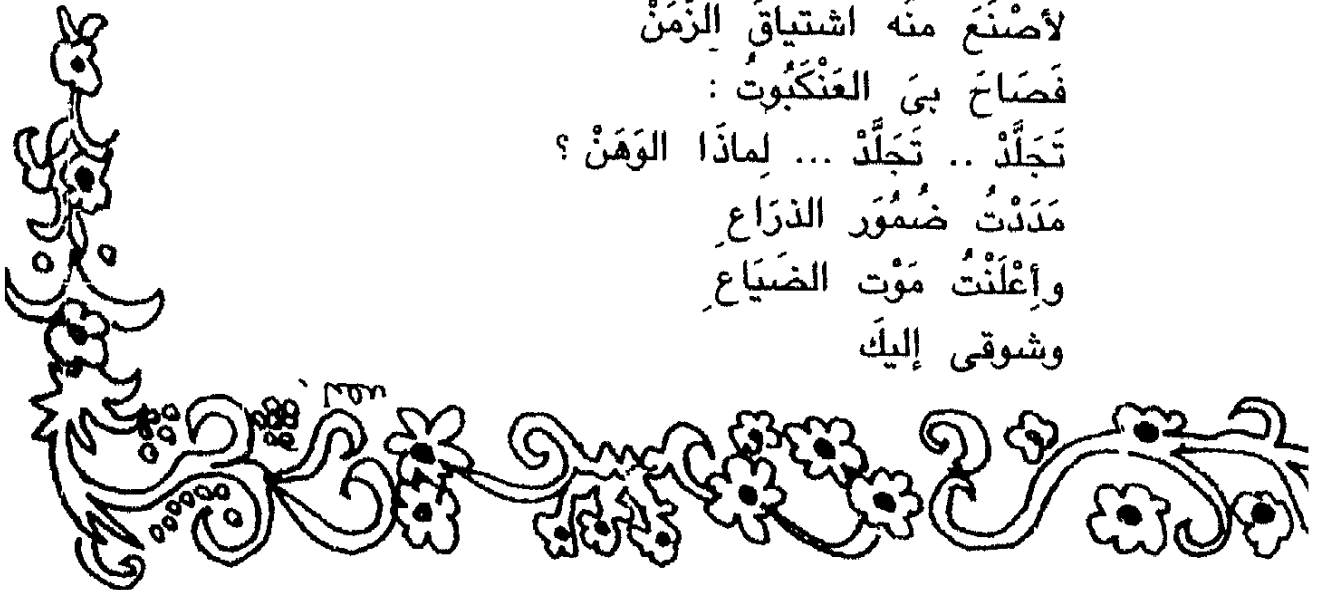 لأصْنَعَ منْه اشتياقَ الزَّمَنْ
فَصَاحَ بىَ العَنْكَبُوتُ :
تَجَلَّدْ .. تَجَلَّدْ ... لِماذَا الوَهَنْ ؟
مَدَدْتُ ضُمُوَر الذرَاعِ
وأعْلَنْتُ مَوْت الضَيَاعِ
وشوقى إليكَ